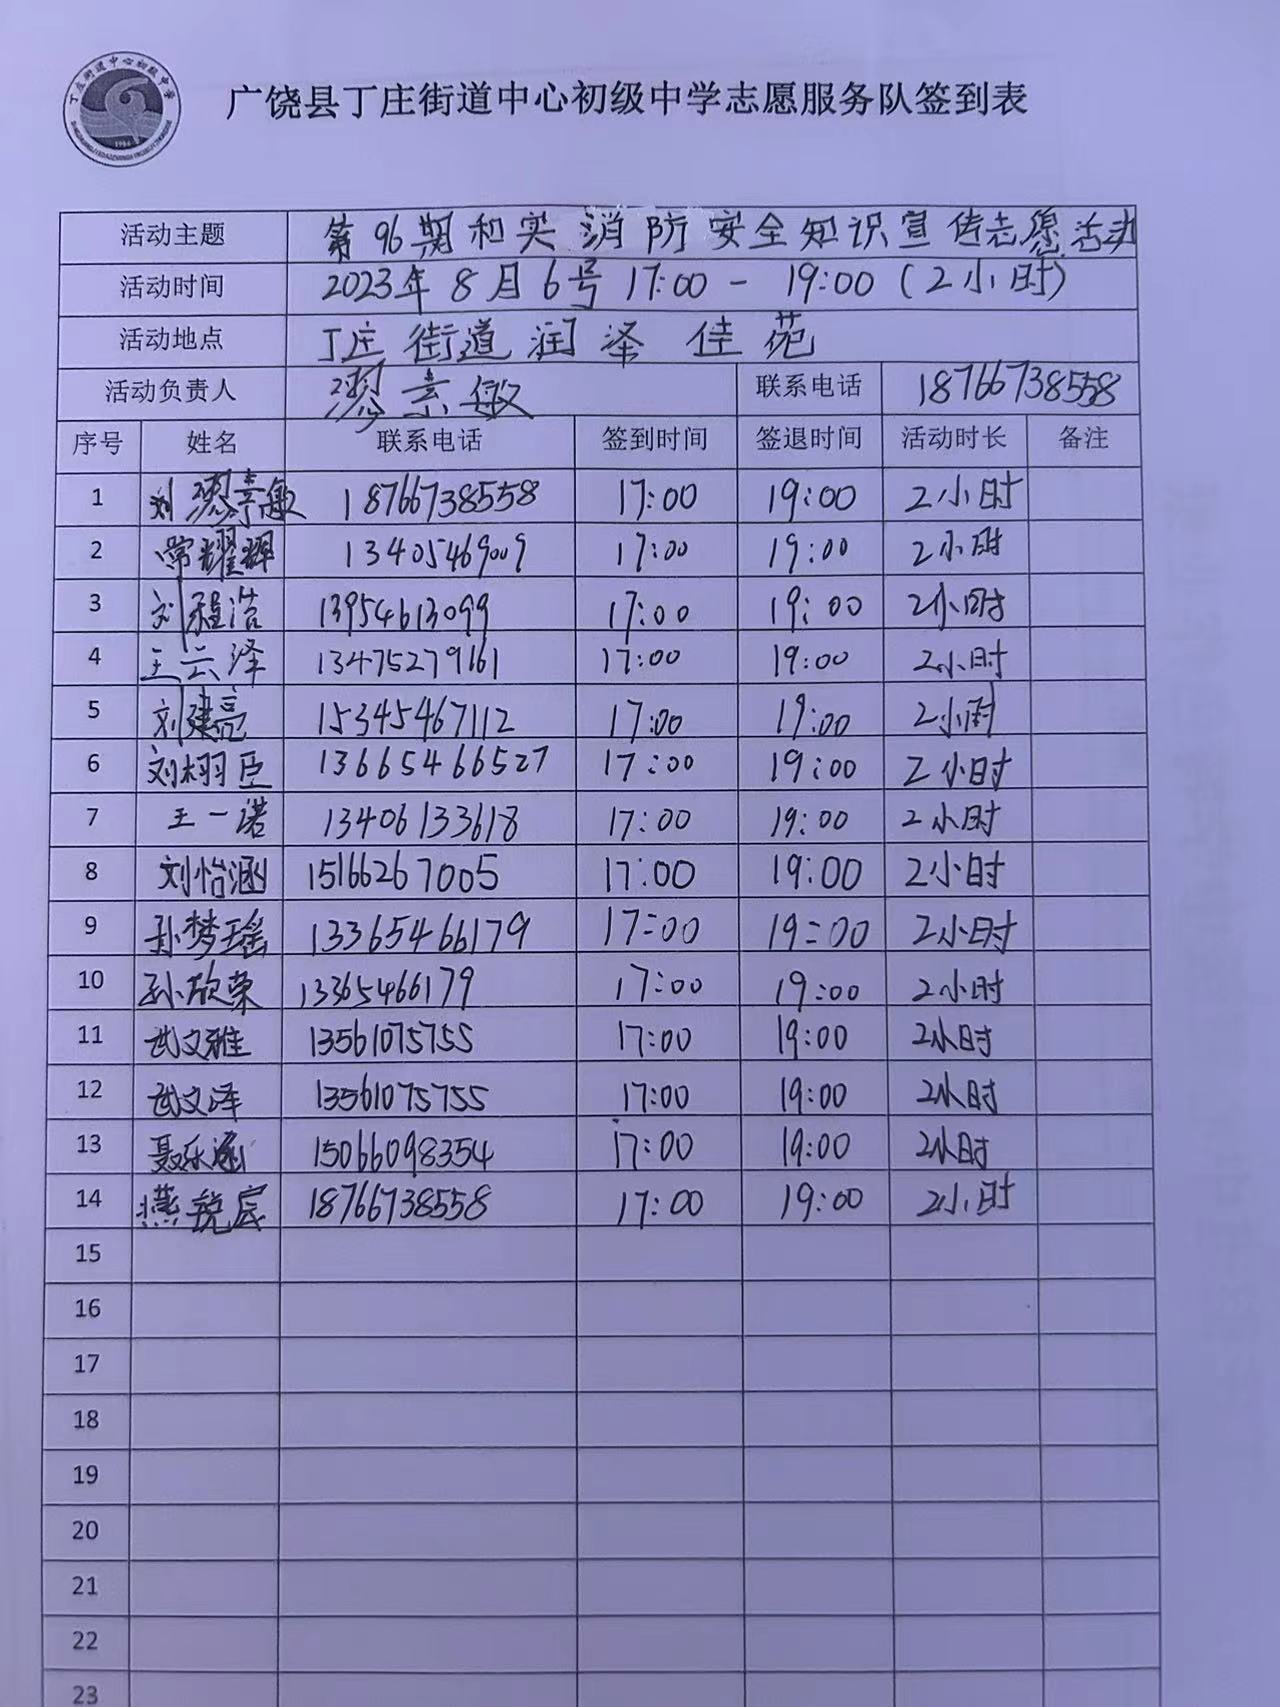 丁庄街道中心初级中学
1984
广饶县丁庄街道中心初级中学志愿服务队签到表
活动主题 第96期和实消防安全知识宣传志愿活动
活动时间 2023年8月6号 17:00 - 19:00 (2小时)
活动地点 丁庄街道润泽佳苑
活动负责人 素敏 联系电话 18766738558
序号 姓名 联系电话 签到时间 签退时间 活动时长 备注
1 素敏 18766738558 17:00 19:00 2小时
2 常耀辉 13405469009 17:00 19:00 2小时
3 刘程浩 13954613099 17:00 19:00 2小时
4 王云泽 13475279161 17:00 19:00 2小时
5 刘建亮 15345467112 17:00 19:00 2小时
6 刘栩臣 13665466527 17:00 19:00 2小时
7 王一诺 13406133618 17:00 19:00 2小时
8 刘怡涵 15166267005 17:00 19:00 2小时
9 孙梦瑶 13365466179 17:00 19:00 2小时
10 孙欣荣 13365466179 17:00 19:00 2小时
11 武文雅 13561075755 17:00 19:00 2小时
12 武文泽 13561075755 17:00 19:00 2小时
13 聂乐涵 15066098354 17:00 19:00 2小时
14 燕锐宸 18766738558 17:00 19:00 2小时
15
16
17
18
19
20
21
22
23